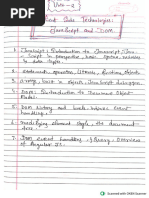 Unit-2
Front Side Technologies:
JavaScript and Dom
1. JavaScript: Introduction to Javascript, Java
Script in perspective, basic syntax, variables
& data types.
2. Statements, operators, literals, functions, objects
3. arrays &
4. DOM: Introduction to Document Object
Model.
5. Dom history and levels, intrinsic event
handling
6. modifying element style, the document
tree
7. Dom event handling, jQuery, Overview
of Angular JS.
Scanned with OKEN Scanner